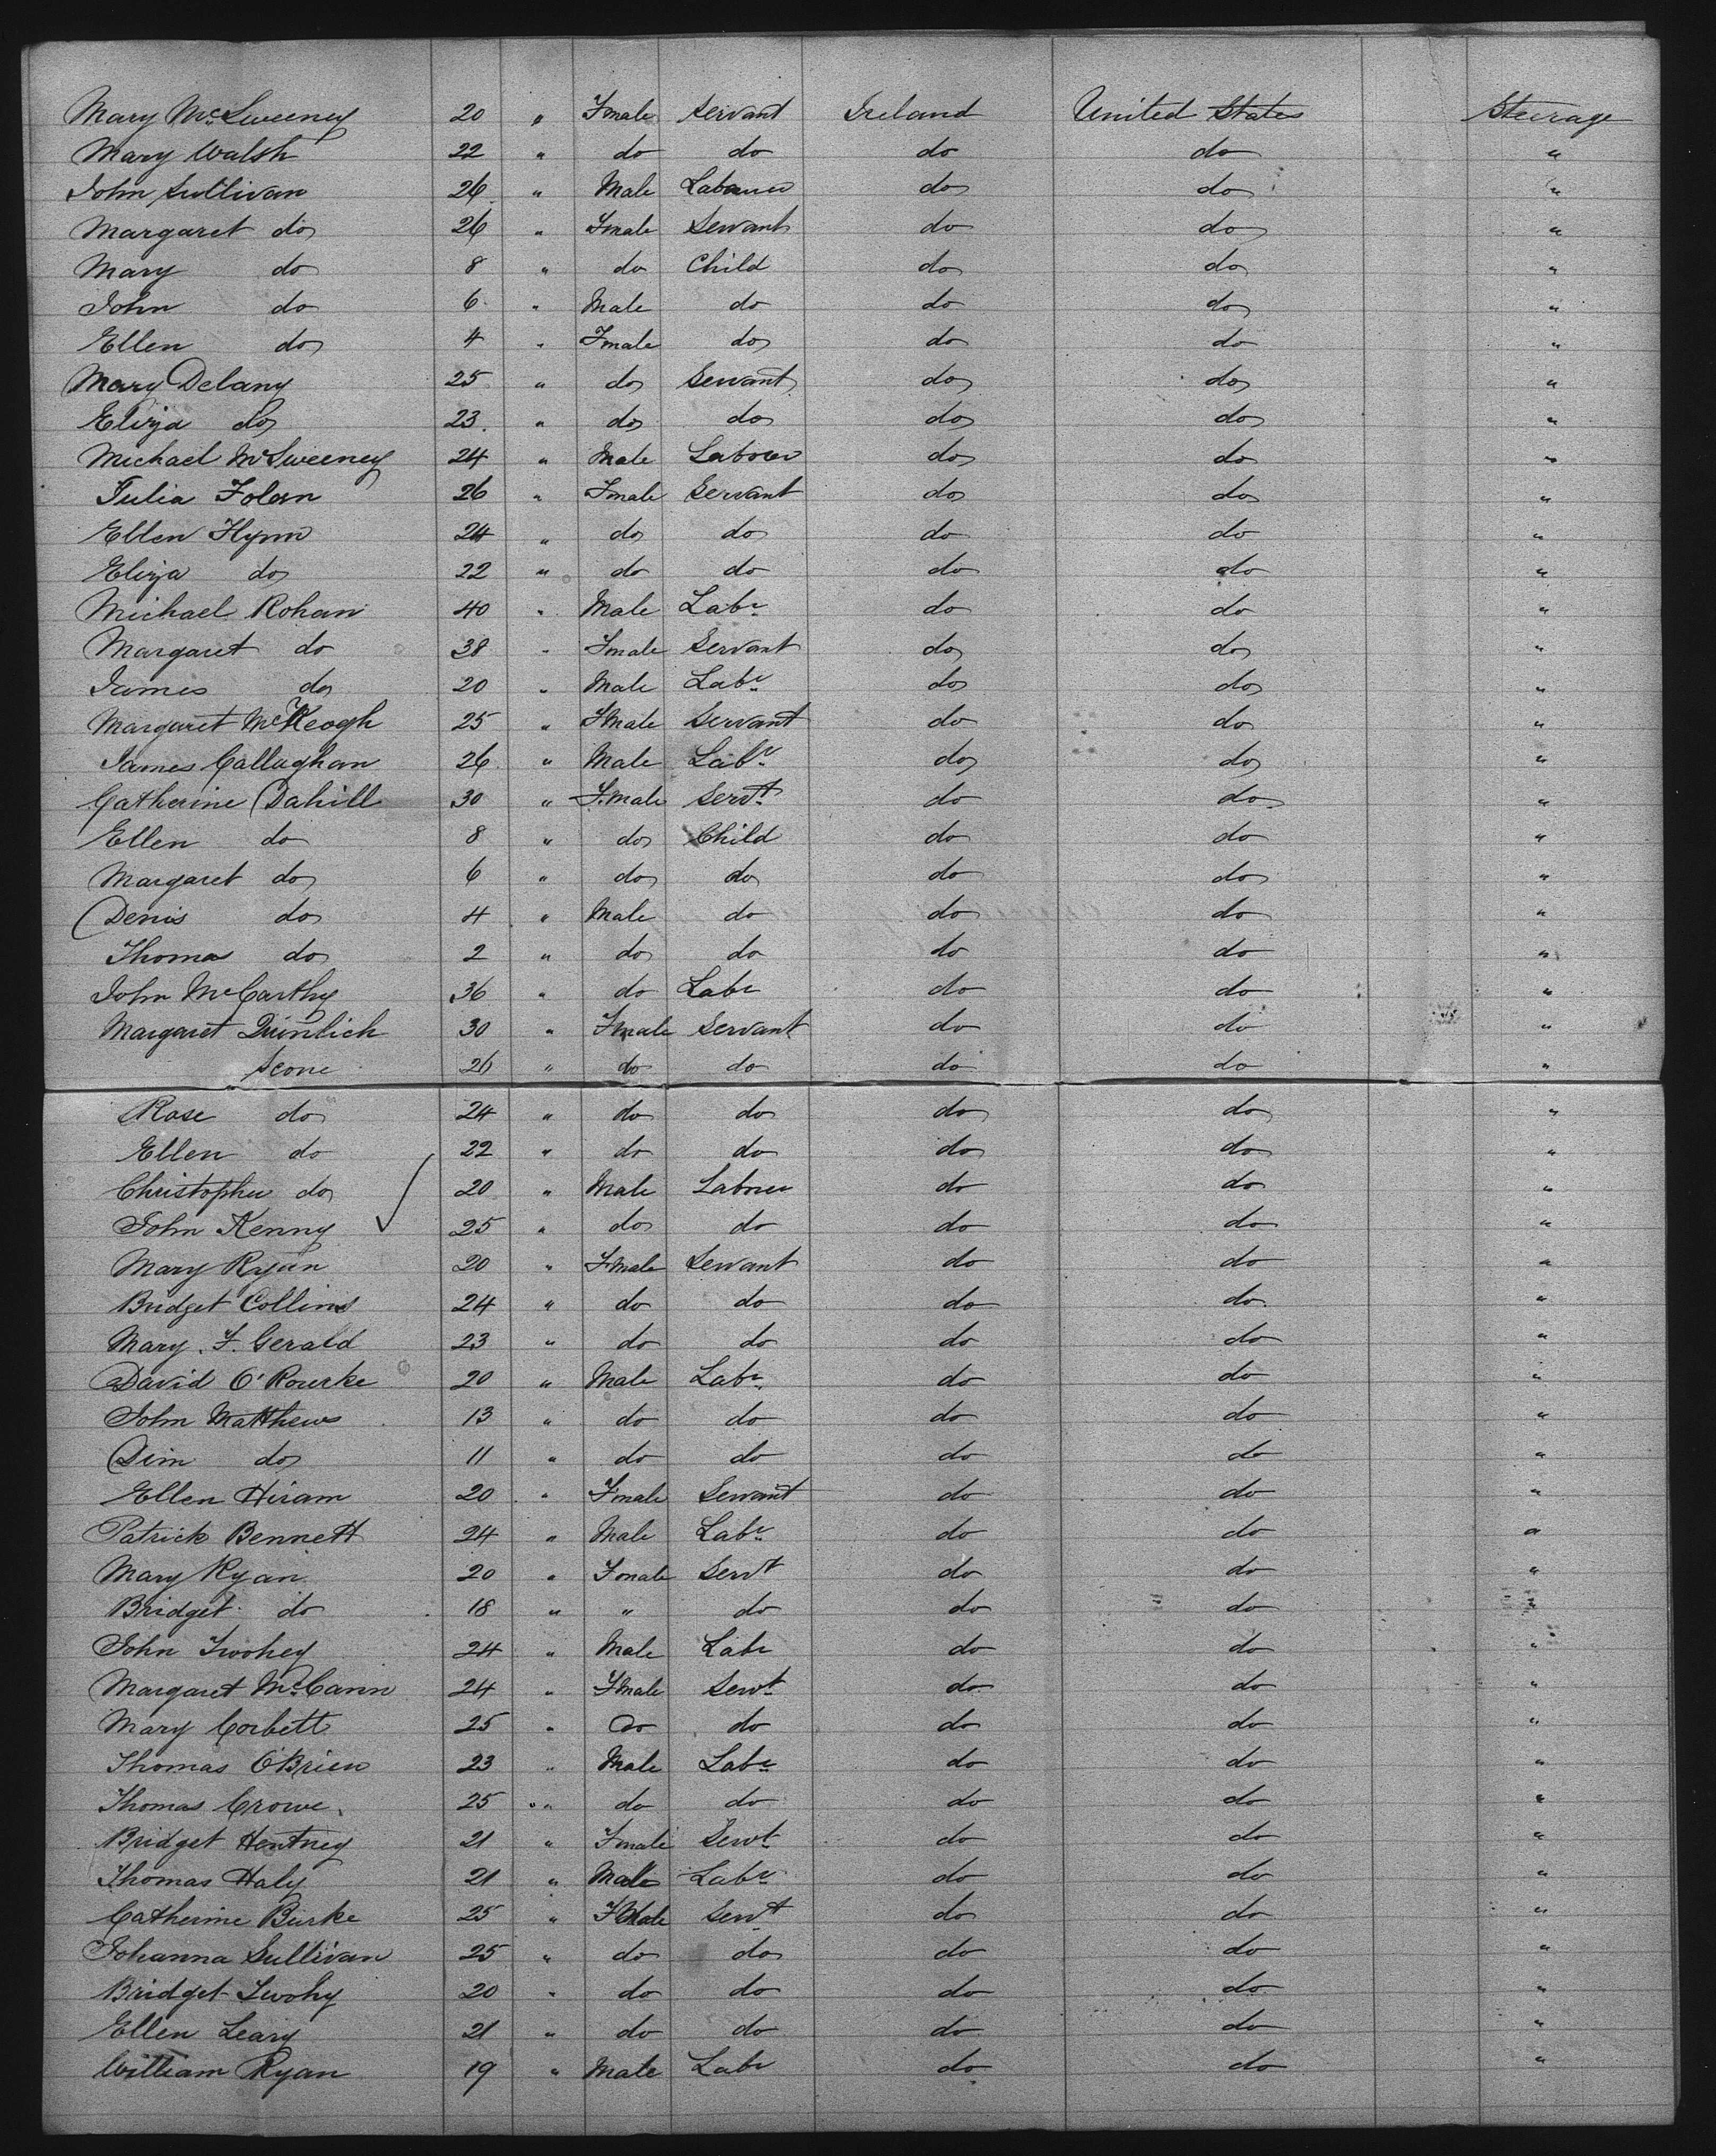 Mary McSweeney 20 " Female Servant Ireland United States Steerage
Mary Walsh 22 " do do do do "
John Sullivan 26 " Male Labourer do do "
Margaret do 26 " Female Servant do do "
Mary do 8 " do Child do do "
John do 6 " Male do do do "
Ellen do 4 " Female do do do "
Mary Delany 25 " do Servant do do "
Eliza do 23 " do do do do "
Michael McSweeney 24 " Male Labourer do do "
Julia Folan 26 " Female Servant do do "
Ellen Flynn 24 " do do do do "
Eliza do 22 " do do do do "
Michael Rohan 40 " Male Labr do do "
Margaret do 38 " Female Servant do do "
James do 20 " Male Labr do do "
Margaret McKeogh 25 " Female Servant do do "
James Callaghan 26 " Male Labr do do "
Catherine Dahill 30 " Female Servt do do "
Ellen do 8 " do Child do do "
Margaret do 6 " do do do do "
Denis do 4 " Male do do do "
Thomas do 2 " do do do do "
John McCarthy 36 " do Labr do do "
Margaret Quinlich 30 " Female Servant do do "
26 " do do do do "
Rose do 24 " do do do do "
Ellen do 22 " do do do do "
Christopher do 20 " Male Labourer do do "
John Kenny 25 " do do do do "
Mary Ryan 20 " Female Servant do do "
Bridget Collins 24 " do do do do "
Mary. F. Gerald 23 " do do do do "
David O'Rourke 20 " Male Labr do do "
John Matthews 13 " do do do do "
do 11 " do do do do "
Ellen Hiram 20 " Female Servant do do "
Patrick Bennett 24 " Male Labr do do "
Mary Ryan 20 " Female Servt do do "
Bridget do 18 " " do do do "
John Twohey 24 " Male Labr do do "
Margaret McCann 24 " Female Servt do do "
Mary Corbett 25 " do do do do "
Thomas O'Brien 23 " Male Labr do do "
Thomas Crowe 25 " do do do do "
Bridget Hentney 21 " Female Servt do do "
Thomas Haly 21 " Male Labr do do "
Catherine Burke 25 " Female Servt do do "
Johanna Sullivan 25 " do do do do "
Bridget Twohy 20 " do do do do "
Ellen Leary 21 " do do do do "
William Ryan 19 " Male Labr do do "